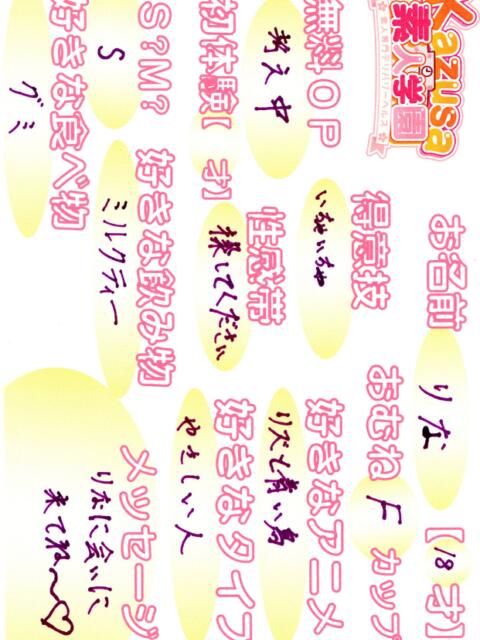 Kazusa
素人学園
素人専門デリバリーヘルス
お名前 りな 【18才】
おむね F カップ
得意技 いちゃいちゃ
好きなアニメ リズと青い鳥
無料OP 考え中
性感帯 探してください
好きなタイプ やさしい人
初体験【 才】
S?M? S
好きな飲み物 ミルクティー
好きな食べ物 グミ
メッセージ
りなに会いに
来てね〜♡